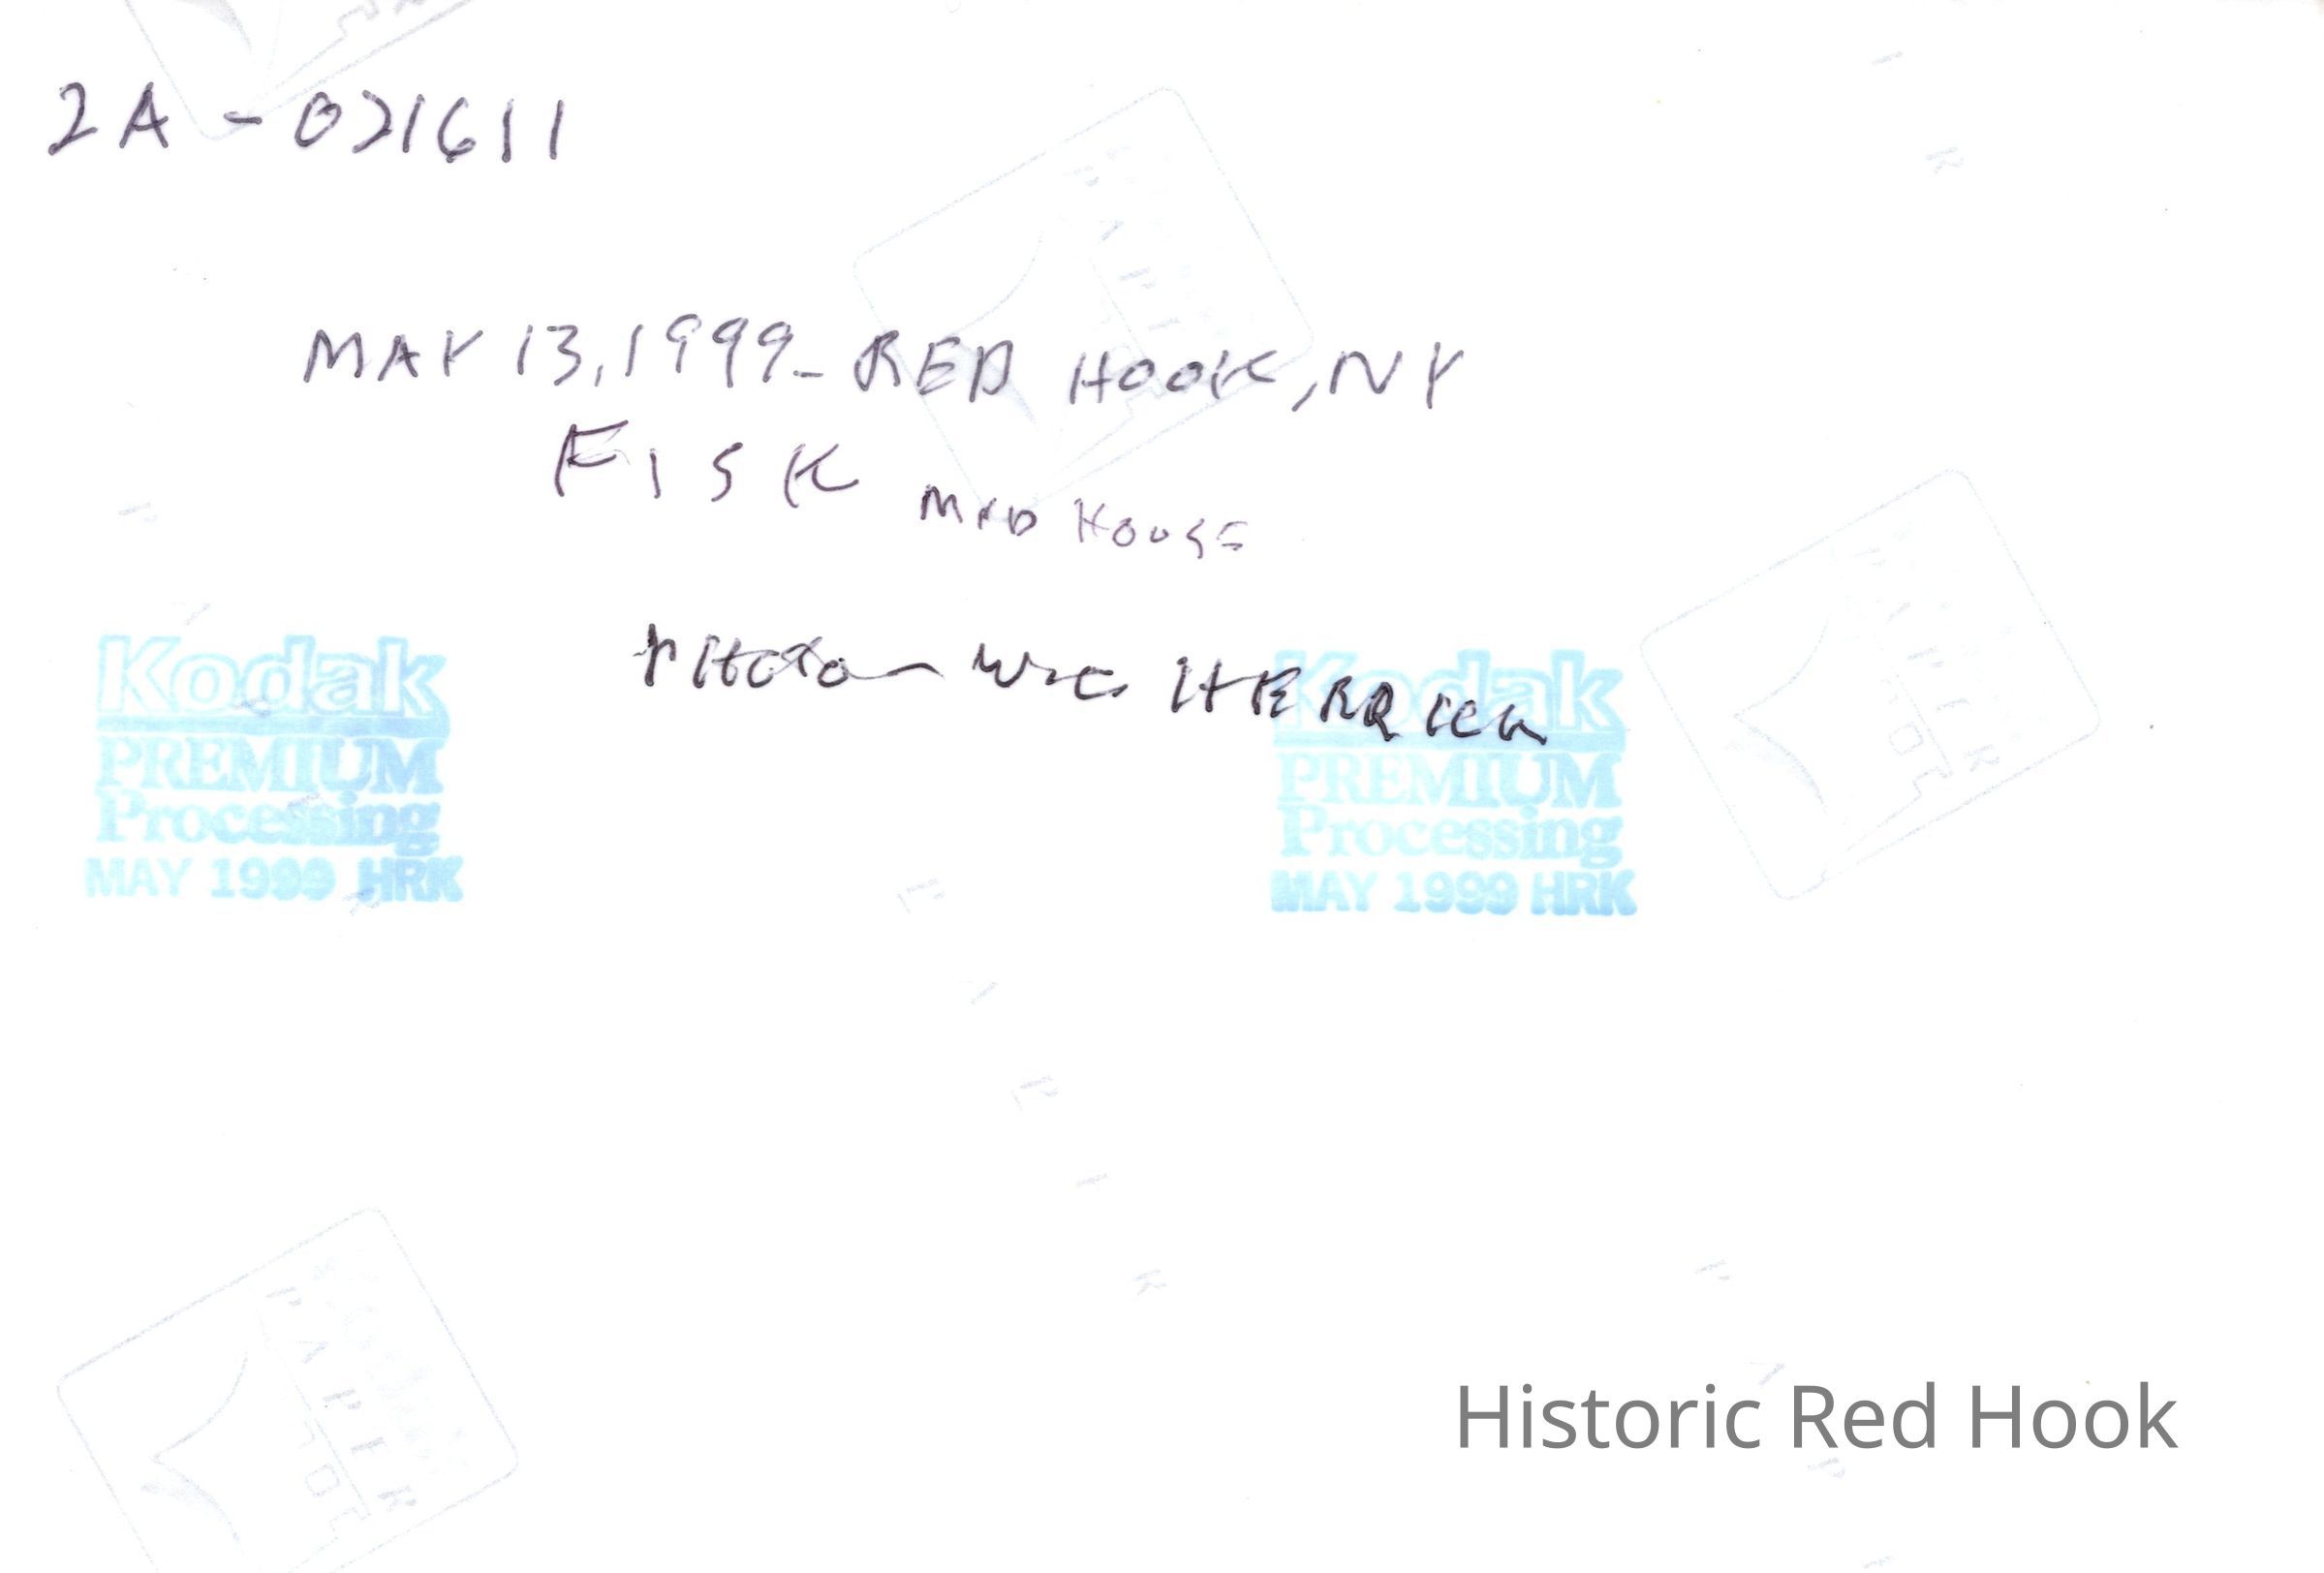 2A - 021611
MAY 13, 1999 - RED HOOK, NY
FISK MUD HOUSE
PHOTO - HERRICK
Kodak
PREMIUM
Processing
MAY 1999 HRK
Kodak
PREMIUM
Processing
MAY 1999 HRK
Historic Red Hook